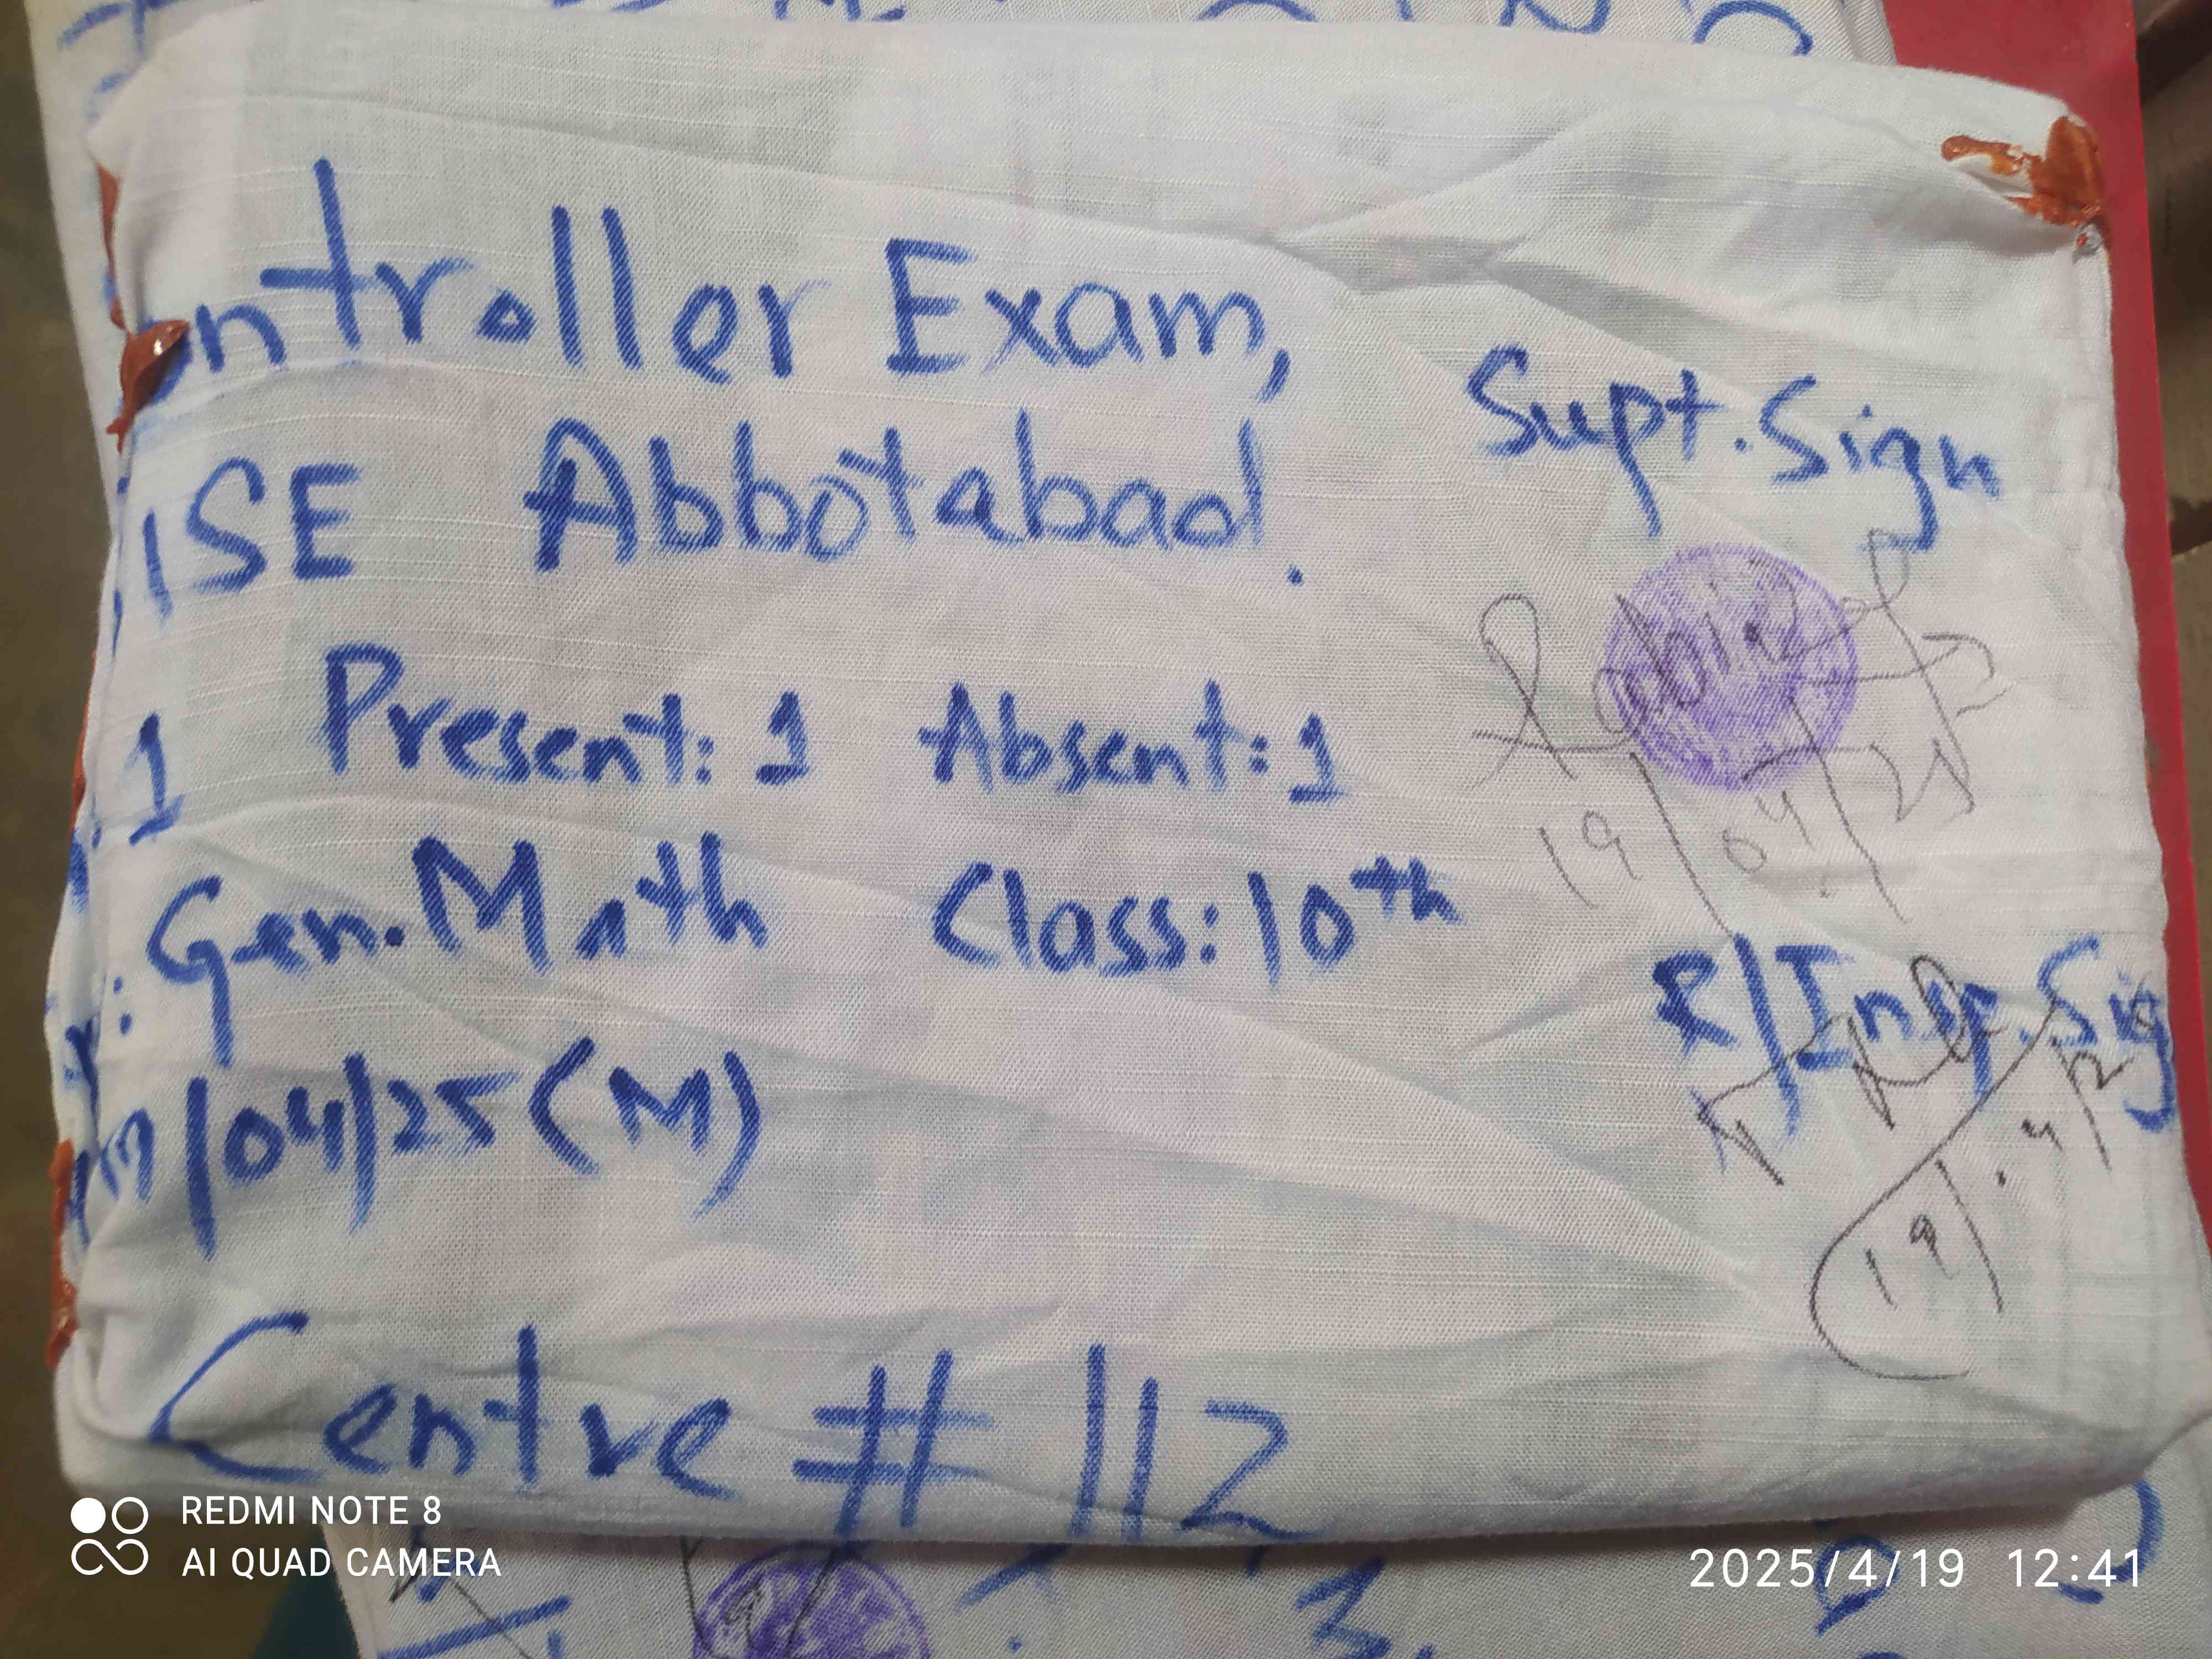 ontroller Exam,
ISE Abbotabad.
Supt. Sign
1 Present: 1 Absent: 1
19/04/25
: Gen. Math Class: 10th
R/Insp. Sig
/04/25 (M)
19/.4/2
Centre # 112
REDMI NOTE 8
AI QUAD CAMERA
2025/4/19 12:41